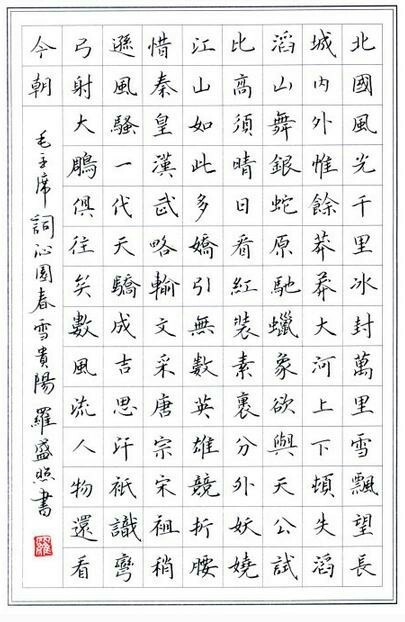 北國風光千里冰封萬里雪飄望長
城內外惟餘莽莽大河上下頓失滔
滔山舞銀蛇原馳蠟象欲與天公試
比高須晴日看紅裝素裹分外妖嬈
江山如此多嬌引無數英雄競折腰
惜秦皇漢武略輸文采唐宗宋祖稍
遜風騷一代天驕成吉思汗祇識彎
弓射大鵰俱往矣數風流人物還看
今朝
毛主席詞沁園春雪貴陽羅盛照書
羅